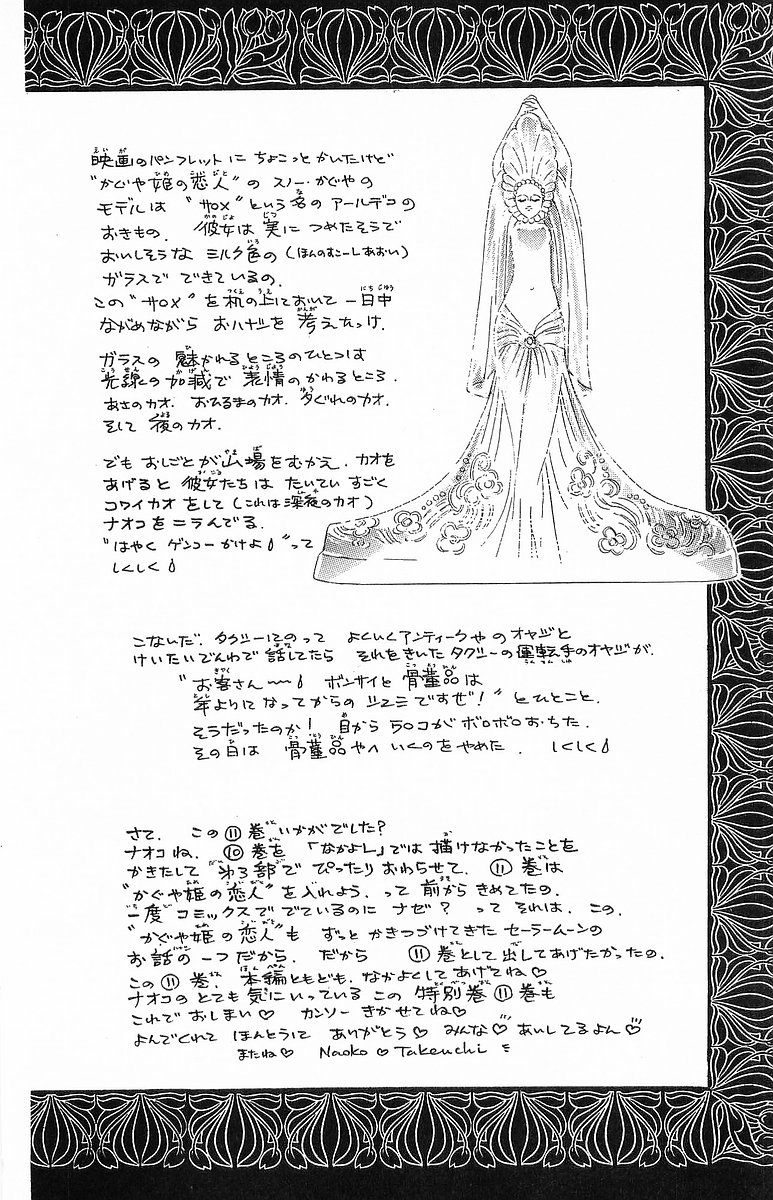 映画のパンフレットに ちょこっと かいたけど
"かぐや姫の恋人"の スノー・かぐやの
モデルは "サロメ"という名の アールデコの
おきもの。 彼女は 実に つめたそうで
おいしそうな ミルク色の (ほんのすこーしあおい)
ガラスで できているの。
この"サロメ"を 机の上において 一日中
ながめながら おハナシを 考えたっけ。
ガラスの 魅かれるところのひとつは
光線の加減で 表情のかわるところ。
あさのカオ。 おひるまのカオ。 夕ぐれのカオ。
そして 夜のカオ。
でも おしごとが 山場をむかえ、カオを
あげると 彼女たちは たいてい すごく
コワイカオをして (これは深夜のカオ)
ナオコを ニランでる。
"はやく ゲンコーかけよ"って
しくしく
こないだ、タクシーにのって よくいくアンティークやの オヤジと
けいたいでんわで 話してたら それをきいた タクシーの運転手のオヤジが、
"お客さん〜〜 ボンサイと 骨董品は
年よりになってからの ツミですぜ!" とひとこと。
そうだったのか! 目から ウロコが ボロボロおちた。
その日は 骨董品やへ いくのをやめた。 しくしく
さて、 この⑪巻 いかがでした?
ナオコね、 ⑩巻を 「なかよし」では 描けなかったことを
かきたして "第3部"で ぴったり おわらせて、 ⑪巻は
"かぐや姫の恋人"を 入れよう、って 前から きめてたの。
一度 コミックスで でているのに ナゼ? って それは、 この、
"かぐや姫の恋人"も ずっと かきつづけてきた セーラームーンの
お話の一つだから。 だから ⑪巻として 出してあげたかったの。
この⑪巻、 本編ともども、なかよくして あげてね♡
ナオコの とても 気にいっている この 特別巻⑪巻も
これで おしまい♡ カンソー きかせてね♡
よんでくれて ほんとうに ありがとう♡ みんな♡ あいしてるよん♡
またね♡ Naoko♡Takeuchi